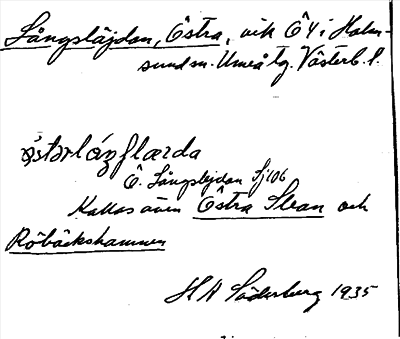 Långslöjdan, Östra, vik ÖY i Holm-
sund sn. Umeå tg. Västerb. l.
östərlángflærda
Ö. Långslejdan Sj 106
Kallas även Östra Slean och
Röbäckshamnen
H A Söderberg 1935